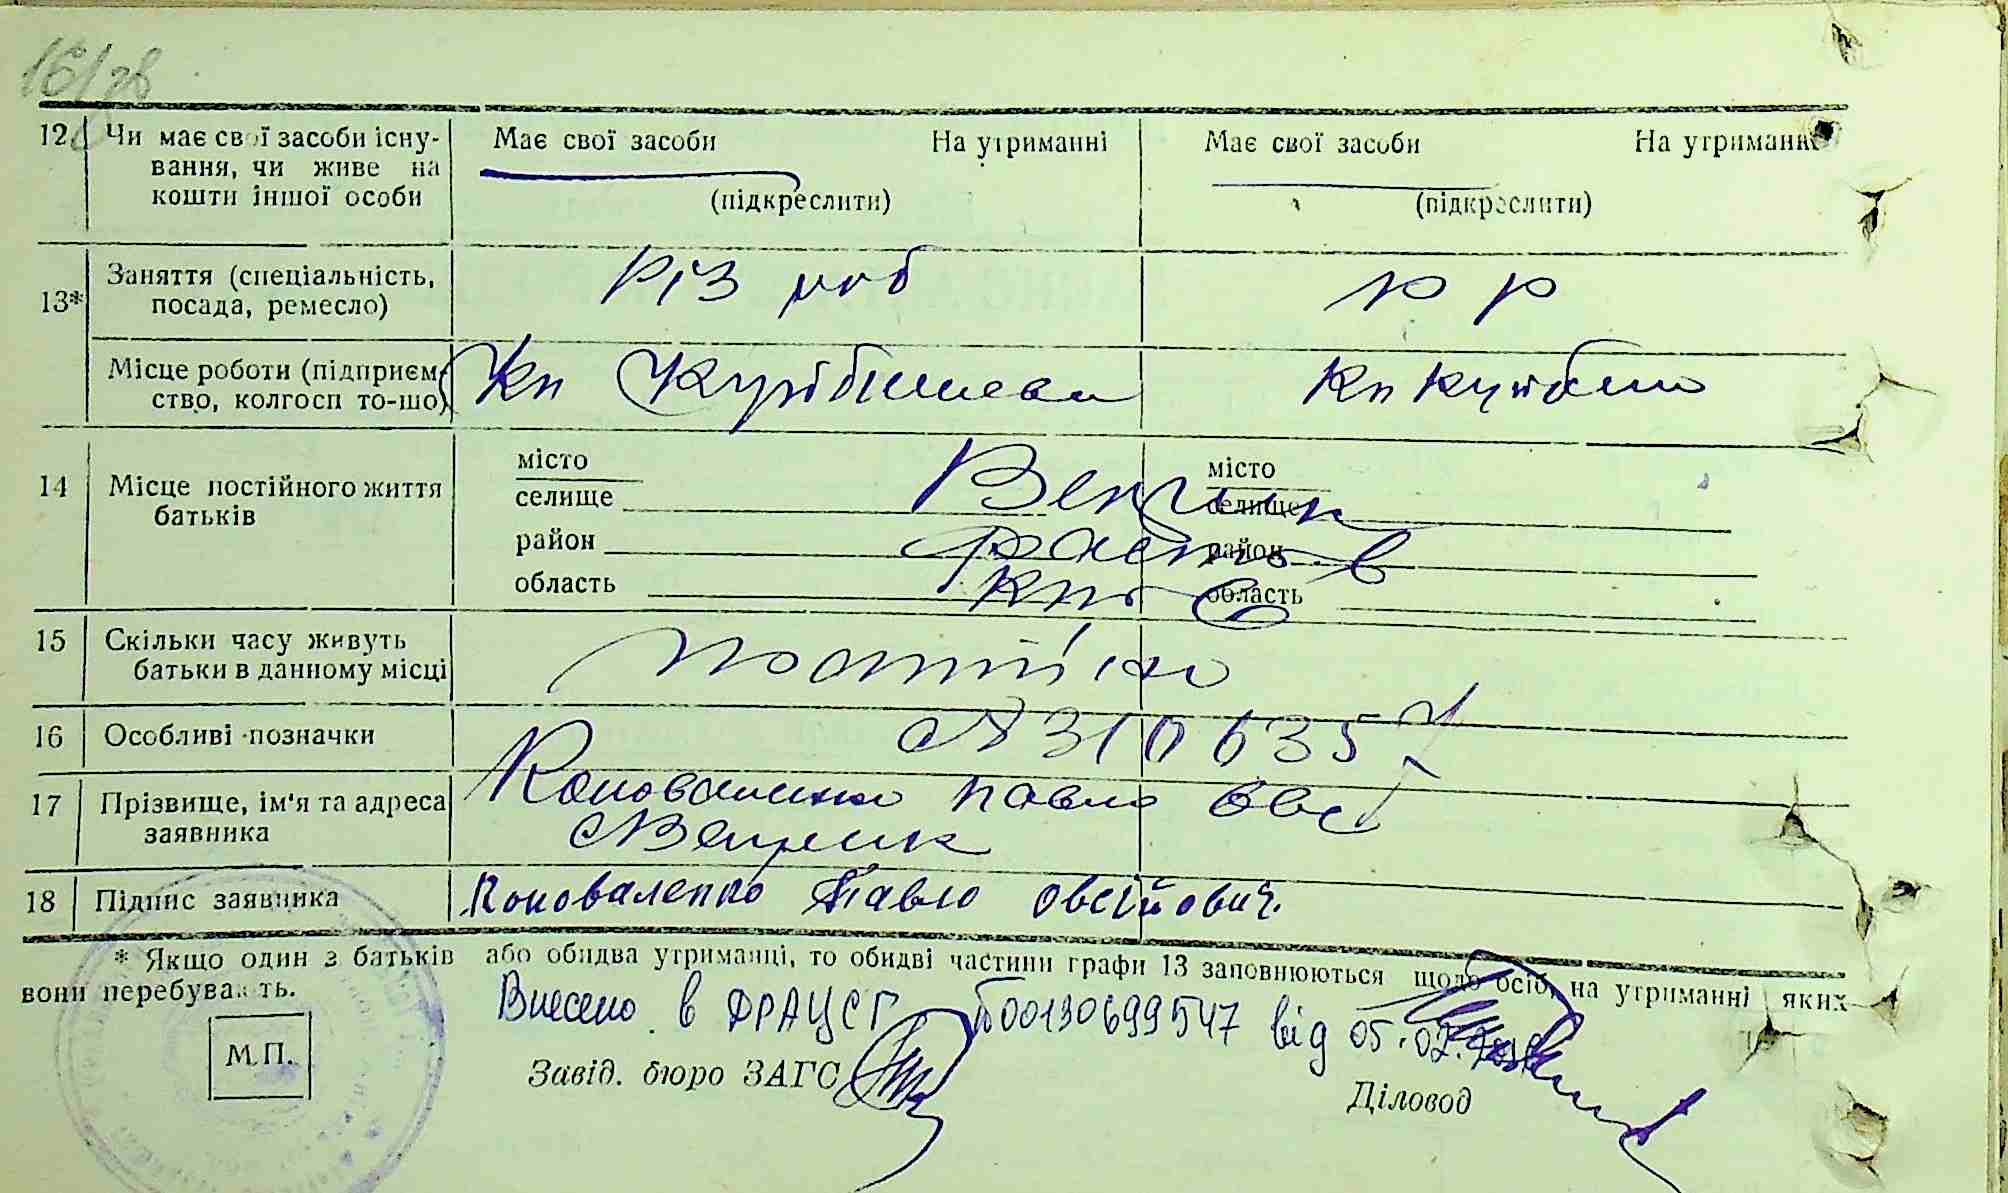 16/78
12 Чи має свої засоби існування, чи живе на кошти іншої особи
Має свої засоби На утриманні
(підкреслити)
Має свої засоби На утриманні
(підкреслити)
13* Заняття (спеціальність, посада, ремесло)
Різ роб
р р
Місце роботи (підприємство, колгосп то-що)
Кп Куйбишева
Кп Куйбиш
14 Місце постійного життя батьків
місто
селище
район
область
місто
селище
район
область
Веприк
Фастов
Київ
15 Скільки часу живуть батьки в данному місці
постійно
16 Особливі позначки
А 310635
17 Прізвище, ім'я та адреса заявника
Коноваленко Павло Овс
с Веприк
18 Підпис заявника
Коноваленко Павло Овсійович.
* Якщо один з батьків або обидва утриманці, то обидві частини графи 13 заповнюються щодо осіб, на утриманні яких
вони перебувають.
Внесено в ДРАЦСГ 00130699547 від 05.02.
М.П.
Завід. бюро ЗАГС
Діловод